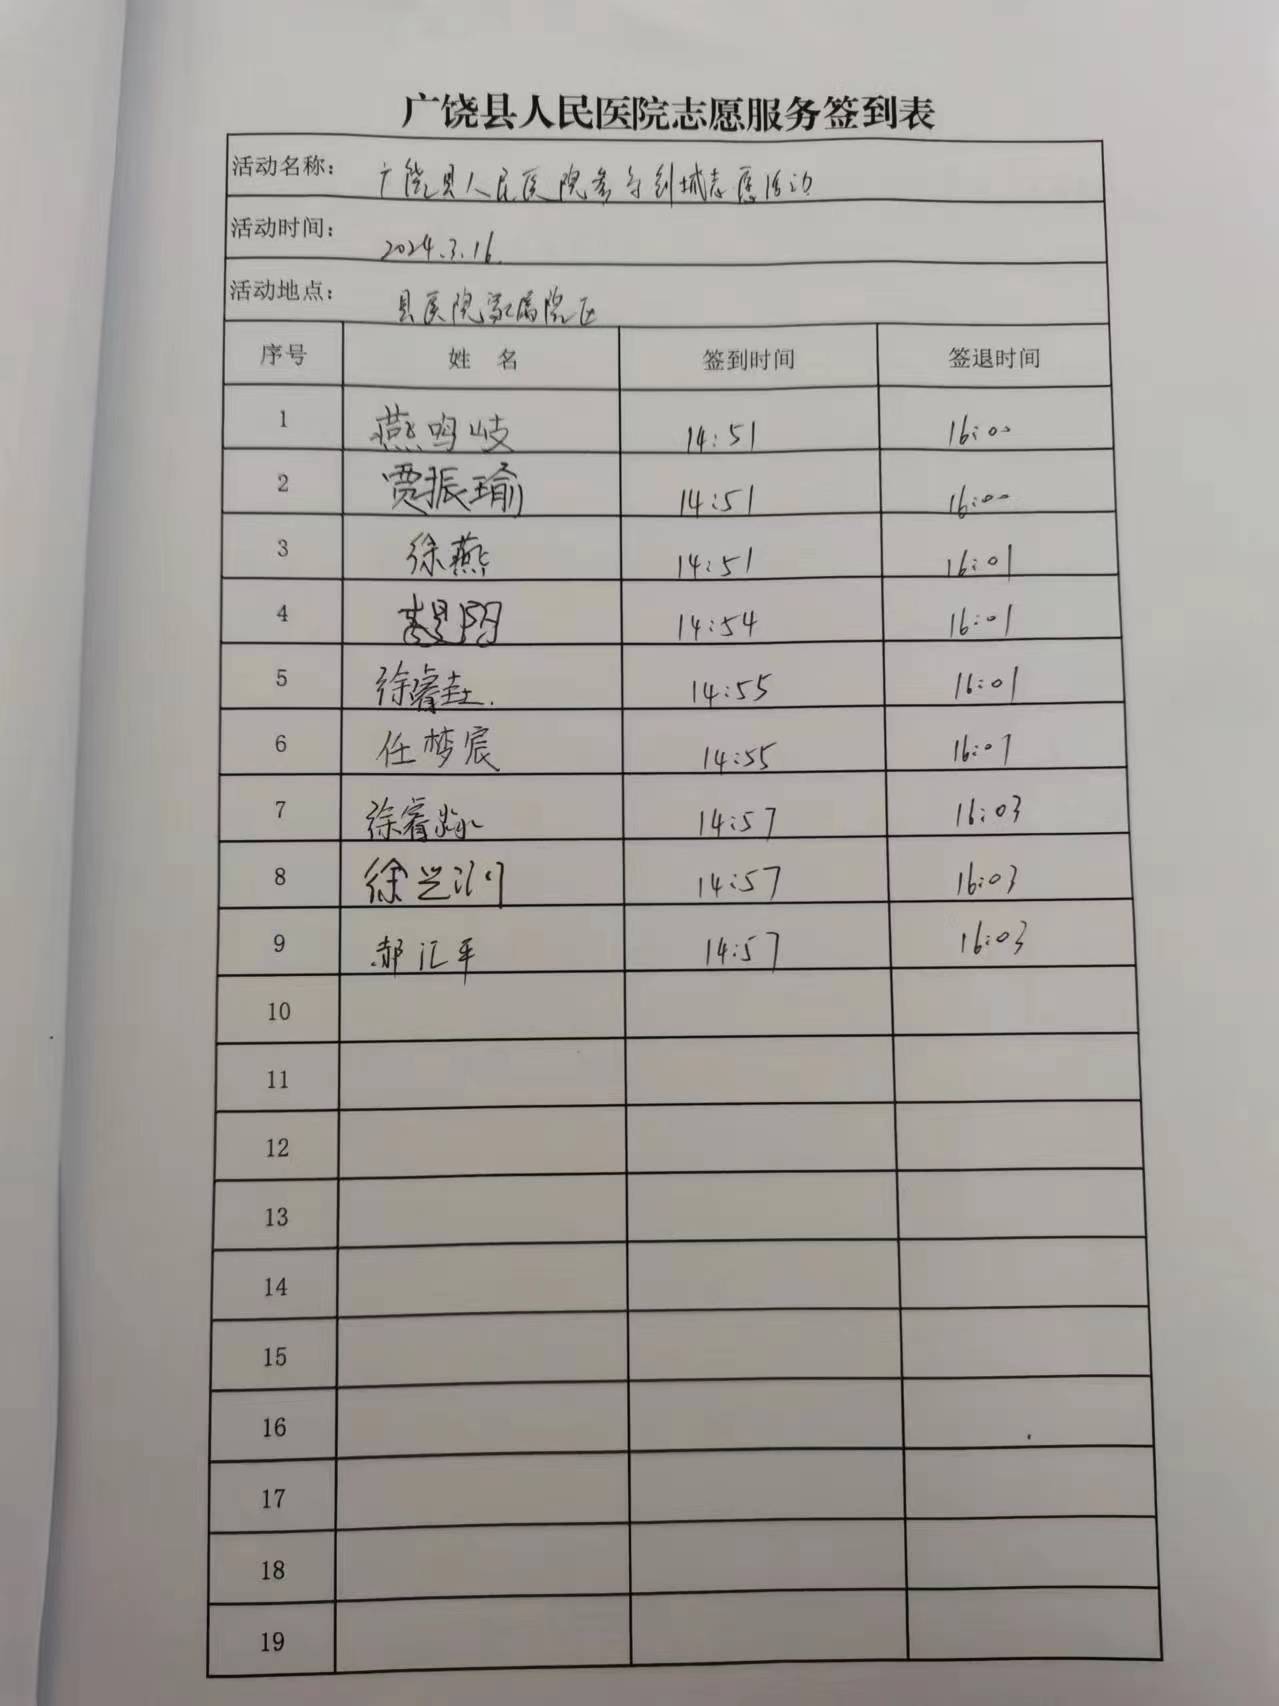 广饶县人民医院志愿服务签到表
活动名称: 广饶县人民医院参与创城志愿活动
活动时间: 2024.3.16.
活动地点: 县医院家属院区
序号 姓 名 签到时间 签退时间
1 燕鸣岐 14:51 16:00
2 贾振瑜 14:51 16:00
3 徐燕 14:51 16:01
4 14:54 16:01
5 徐睿 14:55 16:01
6 任梦宸 14:55 16:07
7 徐睿 14:57 16:03
8 徐兰 14:57 16:03
9 郝汇平 14:57 16:03
10
11
12
13
14
15
16
17
18
19